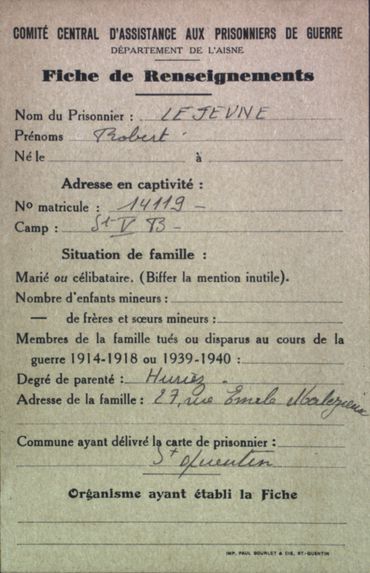 COMITÉ CENTRAL D'ASSISTANCE AUX PRISONNIERS DE GUERRE
DÉPARTEMENT DE L'AISNE
Fiche de Renseignements
Nom du Prisonnier : LEJEUNE
Prénoms Robert
Né le à
Adresse en captivité :
No matricule : 14119 -
Camp : St V B -
Situation de famille :
Marié ou célibataire. (Biffer la mention inutile).
Nombre d'enfants mineurs :
— de frères et sœurs mineurs :
Membres de la famille tués ou disparus au cours de la
guerre 1914-1918 ou 1939-1940 :
Degré de parenté : Huriez
Adresse de la famille : 27, rue Emile Malezieux
Commune ayant délivré la carte de prisonnier :
St Quentin
Organisme ayant établi la Fiche
IMP. PAUL BOURLET & CIE, ST-QUENTIN